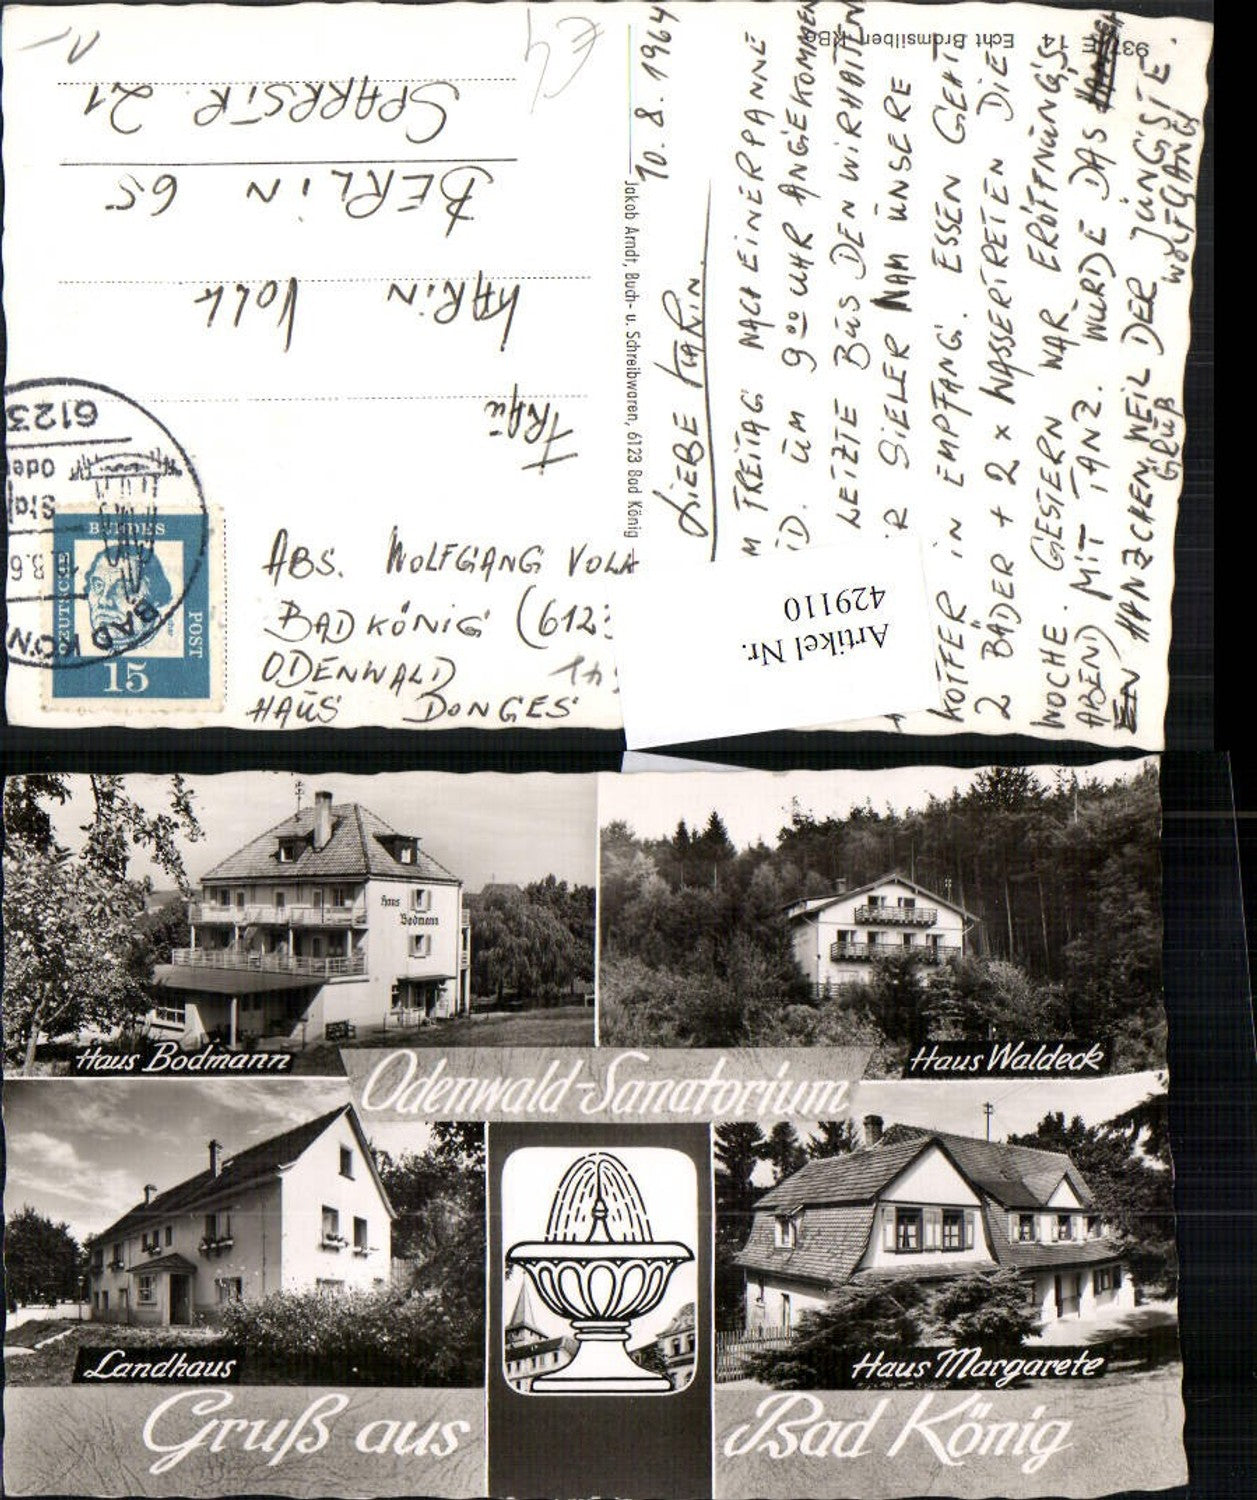 937/E 4 Echt Bromsilber RBo
10. 8. 1964
LIEBE KARIN.
FREITAG NACH EINER PANNE
UM 9⁰⁰ UHR ANGEKOMMEN
LETZTE BUS DEN WIR HATTEN
NAM UNSERE
KOFFER IN EMPFANG. ESSEN GEHT
2 BÄDER + 2 x WASSERTRETEN DIE
WOCHE. GESTERN WAR ERÖFFNUNGS
ABEND MIT TANZ. WURDE DAS
HÄNZCHEN WEIL DER JÜNGSTE.
GRUß WOLFGANG
Jakob Arndt, Buch- u. Schreibwaren, 6123 Bad König
FRAU
KARIN VOLK
BERLIN 65
SPARRSTR. 21
6123
BAD KÖN
DEUTSCHE
BUNDES
POST
15
ABS. WOLFGANG VOLK
BAD KÖNIG (6123
ODENWALD
HAUS DONGES
Artikel Nr.
429110
Haus
Bodmann
Haus Bodmann
Haus Waldeck
Odenwald-Sanatorium
Landhaus
Haus Margarete
Gruß aus Bad König